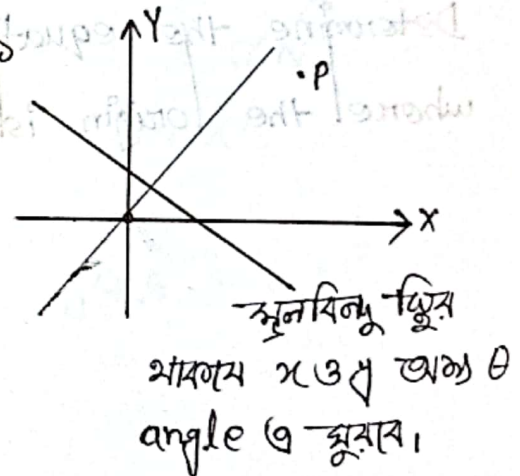 Y
.P
X
মূলবিন্দু স্থির
থাকবে x ও y অক্ষ θ
angle এ ঘুরবে।